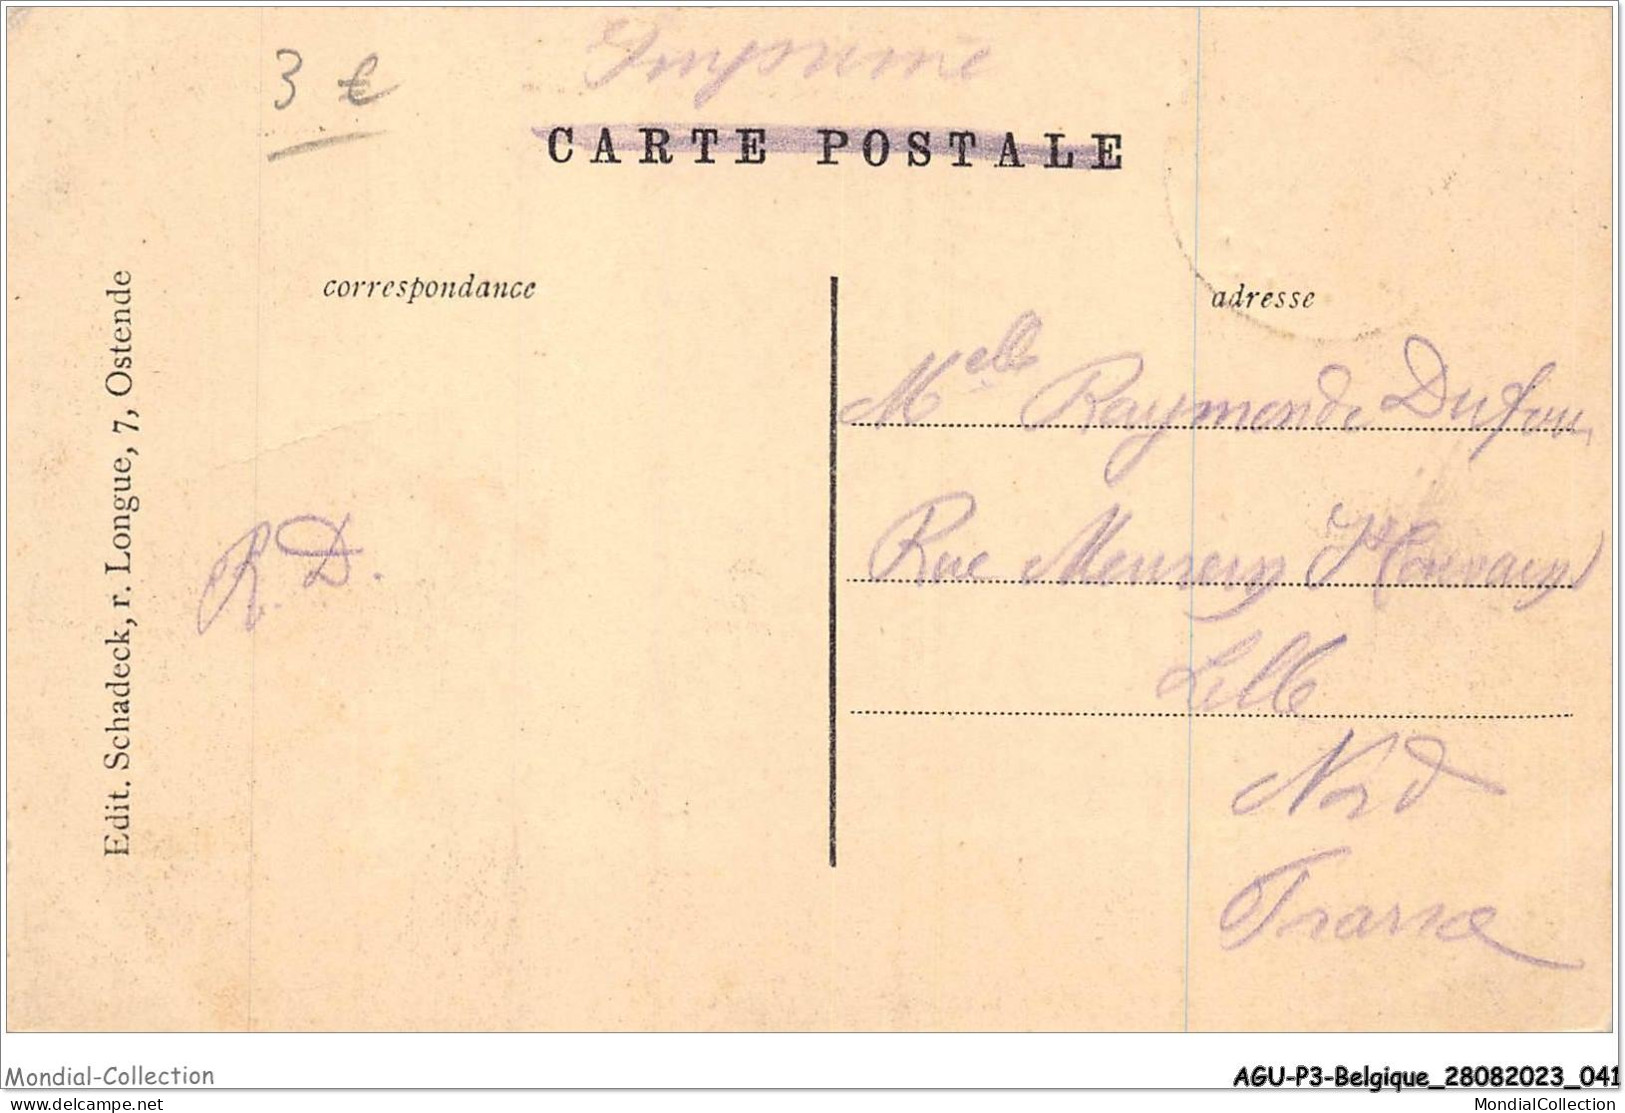 3 €
Imprimé
CARTE POSTALE
correspondance
adresse
Edit. Schadeck, r. Longue, 7, Ostende
Melle Raymonde Dufour
Rue Meurein
R. D.
Lille
Nord
France
Mondial-Collection
AGU-P3-Belgique_28082023_041
Plus de cartes sur mondialcollection.delcampe.net
MondialCollection